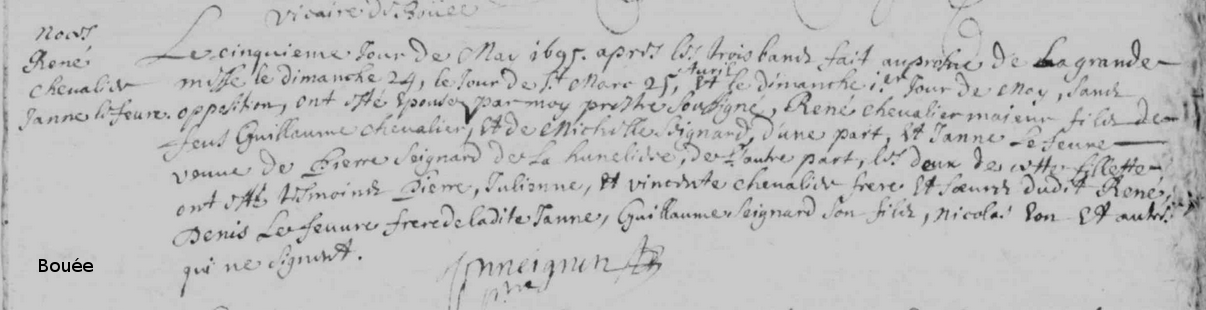 vicaire de Boüée
noces
René
chevalier
Janne lefeuvre.
Le cinquieme Jour de May 1695. apres les trois bancs fait au prosne de La grande
messe le dimanche 24, le Jour de St Marc 25, Avril et le dimanche 1er Jour de May, sans
opposition, ont esté Epousés par moy prestre soussigné, René chevalier majeur fils de
feus Guillaume chevalier, et de Michelle Seignard, d'une part, et Janne Lefeuvre
veuve de Pierre Seignard de La hunelisse, de L'autre part, les deux de cette fillette
ont estés tesmoins Pierre, Julienne, et vincente chevalier frere et sœurs dudit René,
Denis Lefeuvre frere de ladite Janne, Guillaume Seignard son fils, Nicolas Eon et autres
qui ne signent.
Bouée